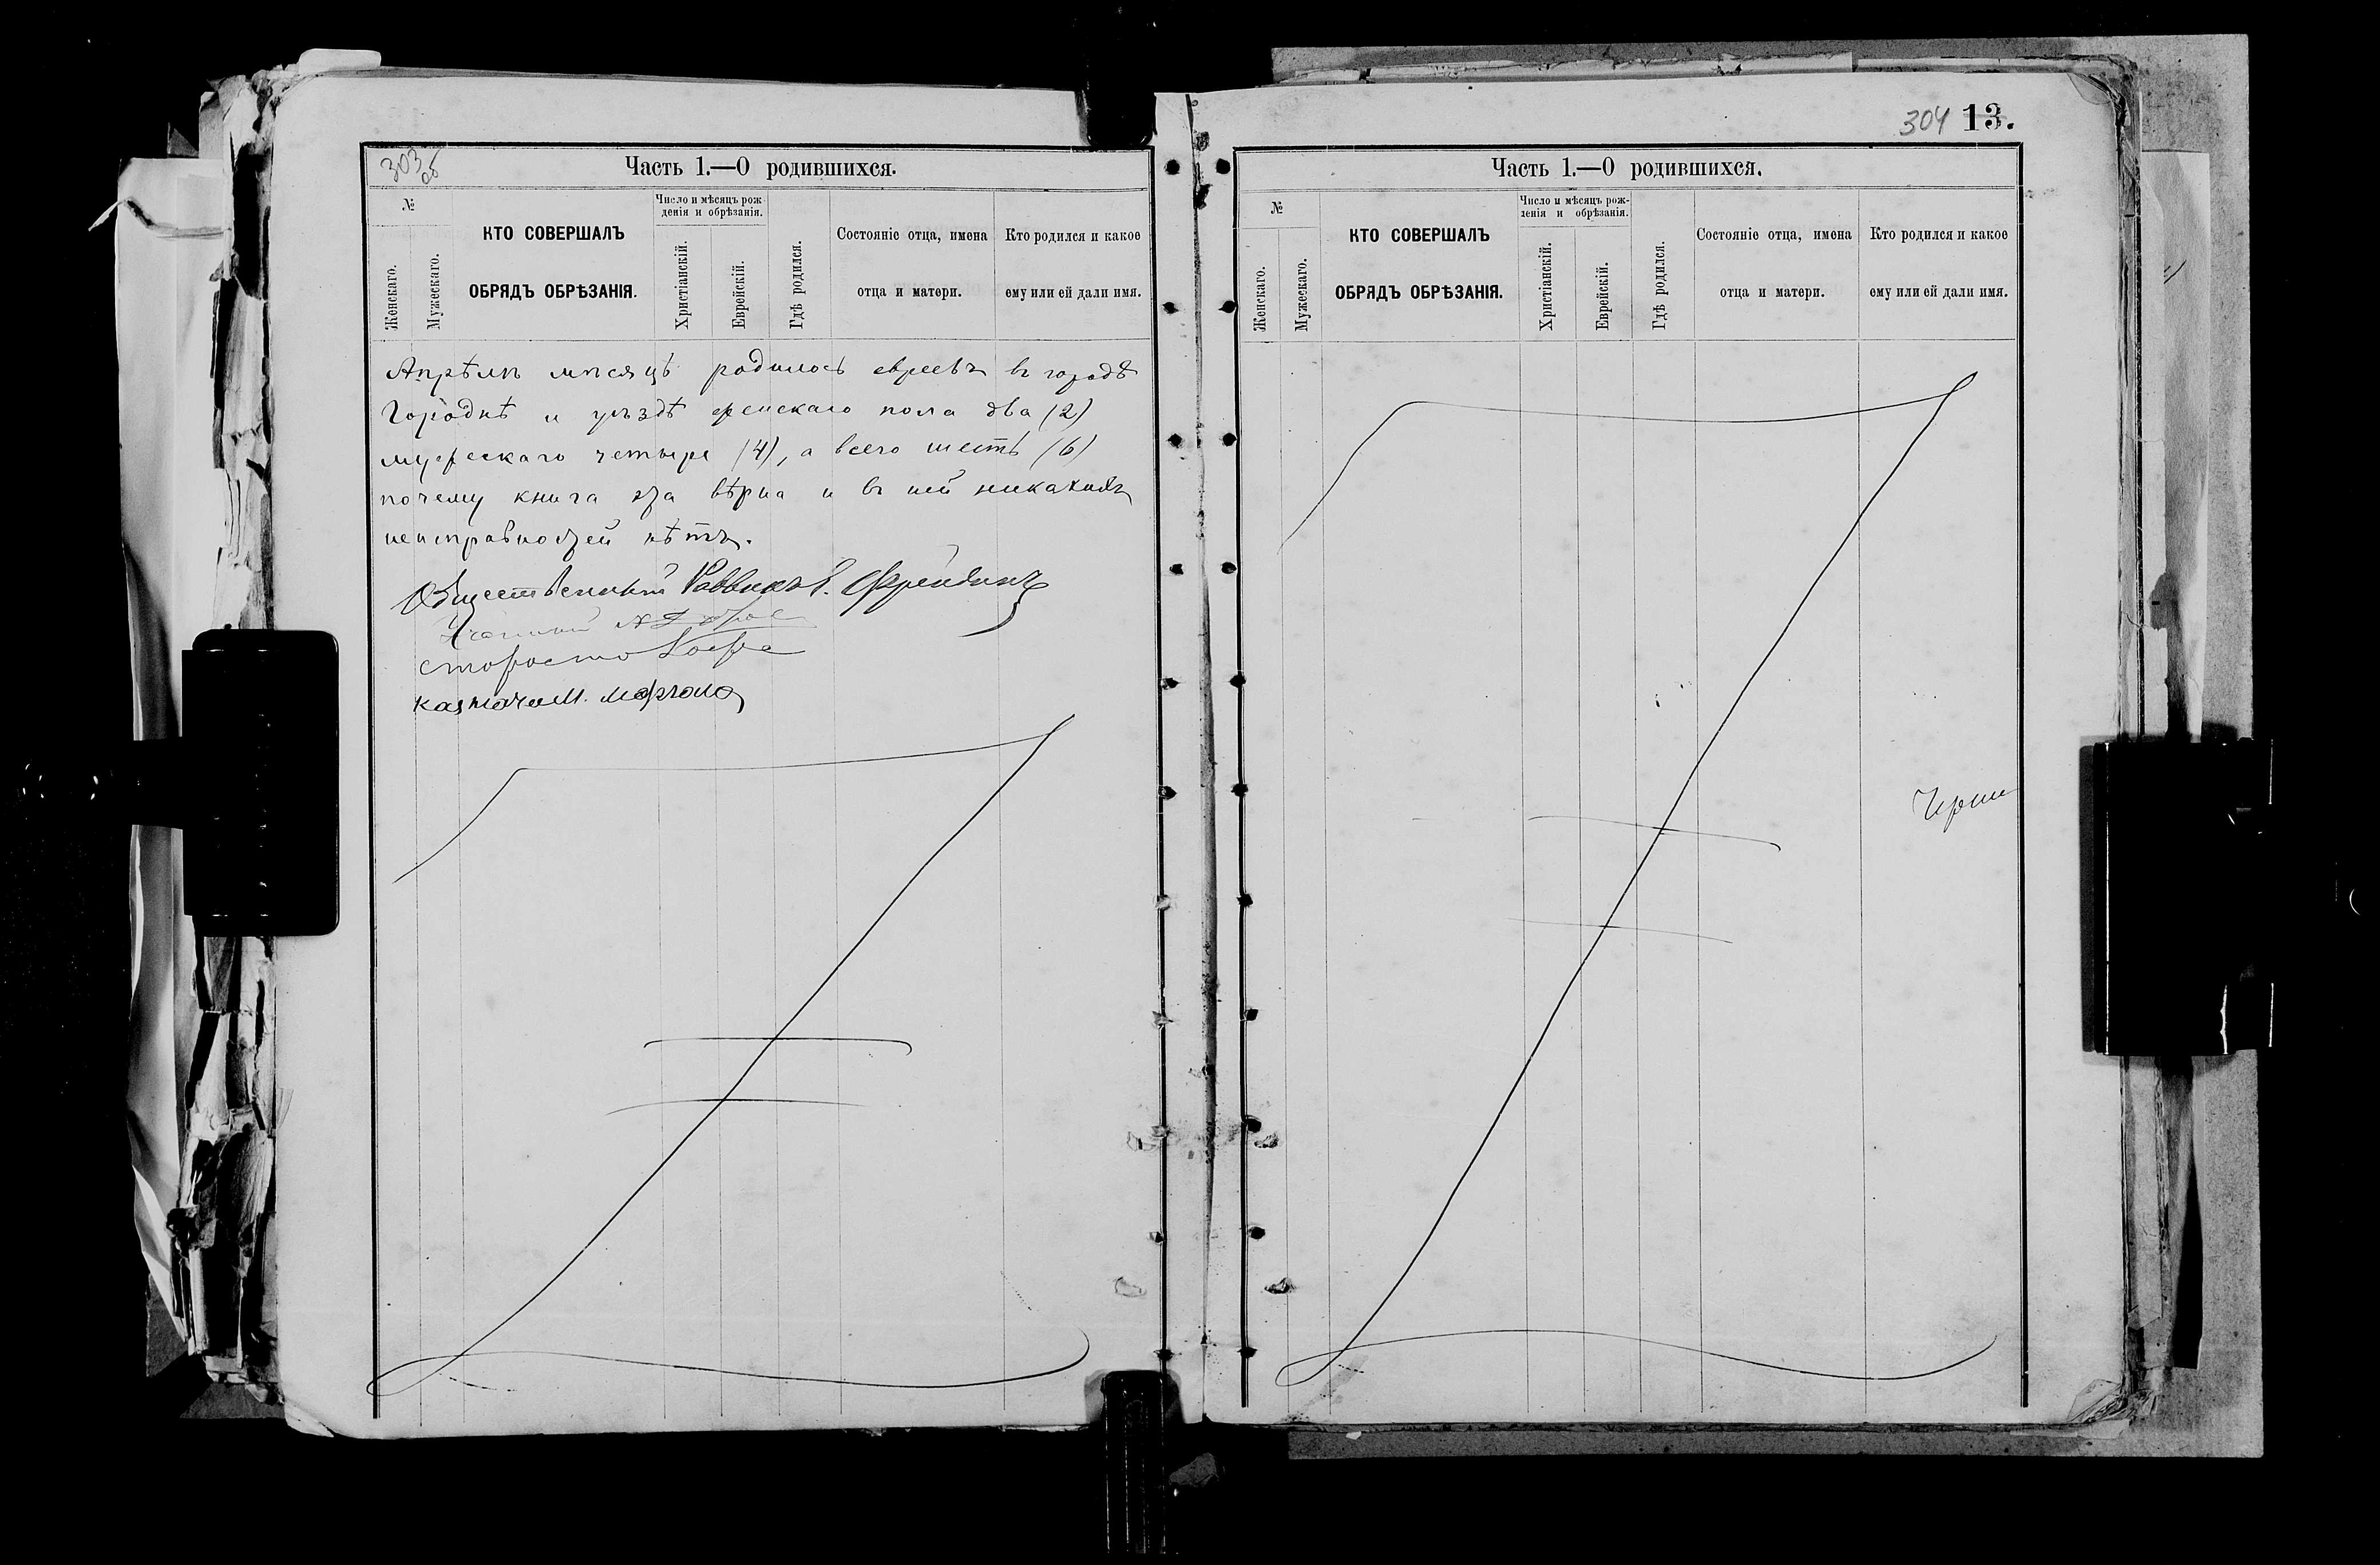 303 об
Часть 1.—О родившихся.
№
Женскаго.
Мужескаго.
КТО СОВЕРШАЛЪ
ОБРЯДЪ ОБРѢЗАНІЯ.
Число и мѣсяцъ рож-
денія и обрѣзанія.
Христіанскій.
Еврейскій.
Гдѣ родился.
Состояніе отца, имена
отца и матери.
Кто родился и какое
ему или ей дали имя.
Апрѣль мѣсяцъ родилось евреевъ въ городѣ
Городнѣ и уѣздѣ женскаго пола два (2)
мужескаго четыре (4), а всего шесть (6)
почему книга эта вѣрна и въ ней никакихъ
неисправностей нѣтъ.
Общественный Раввинъ Фрейдинъ
Ученый
староста
казначей М.
304 13.
Часть 1.—О родившихся.
№
Женскаго.
Мужескаго.
КТО СОВЕРШАЛЪ
ОБРЯДЪ ОБРѢЗАНІЯ.
Число и мѣсяцъ рож-
денія и обрѣзанія.
Христіанскій.
Еврейскій.
Гдѣ родился.
Состояніе отца, имена
отца и матери.
Кто родился и какое
ему или ей дали имя.